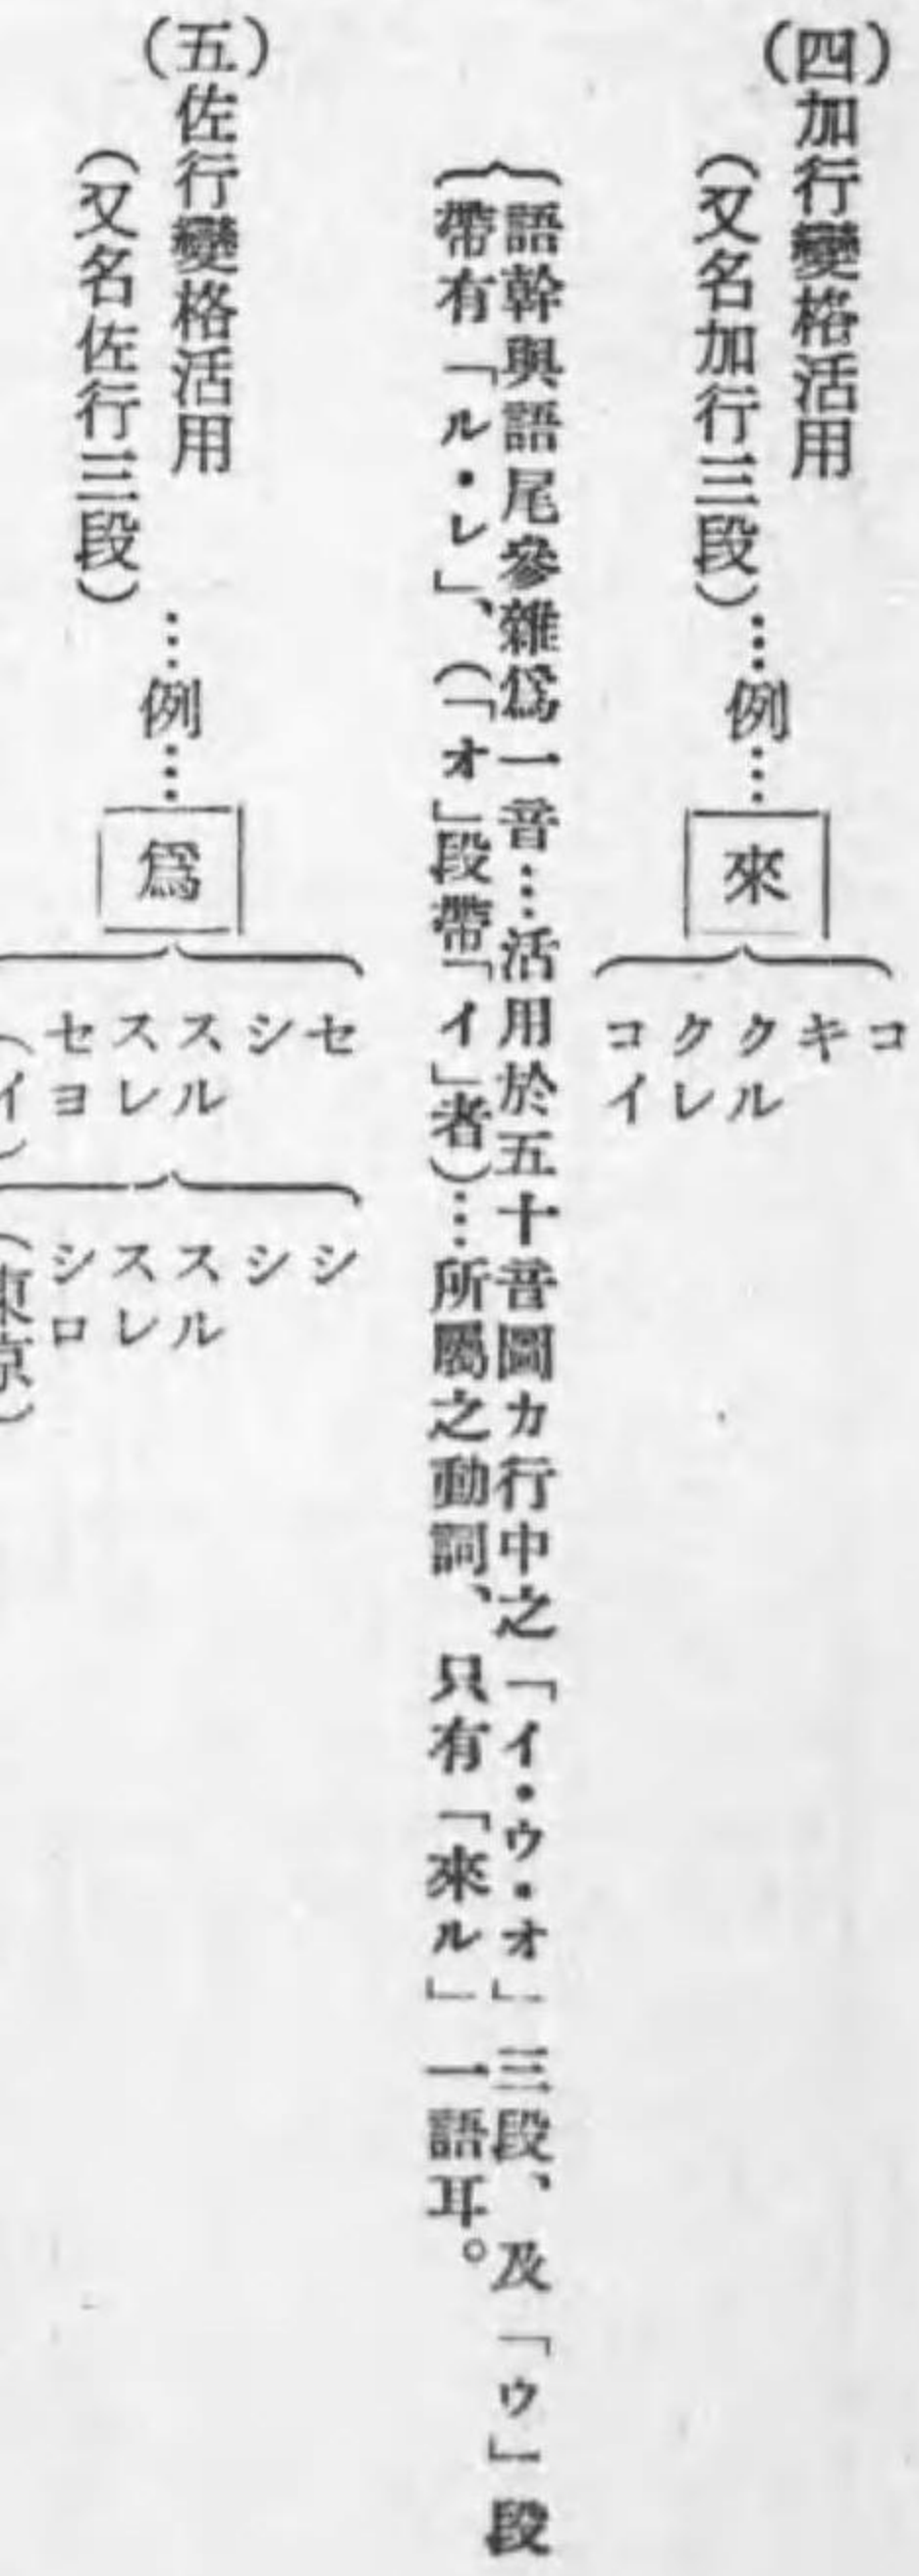 （四）加行變格活用
（又名加行三段）
…例…
來
コ
キ
クル
クレ
コイ
語幹與語尾參雜爲一音…活用於五十音圖カ行中之「イ・ウ・オ」三段、及「ウ」段
帶有「ル・レ」、（「オ」段帶「イ」者）…所屬之動詞、只有「來ル」一語耳。
（五）佐行變格活用
（又名佐行三段）
…例…
爲
セ
シ
スル
スレ
セヨ
（イ）
シ
シ
スル
スレ
シロ
（東京）